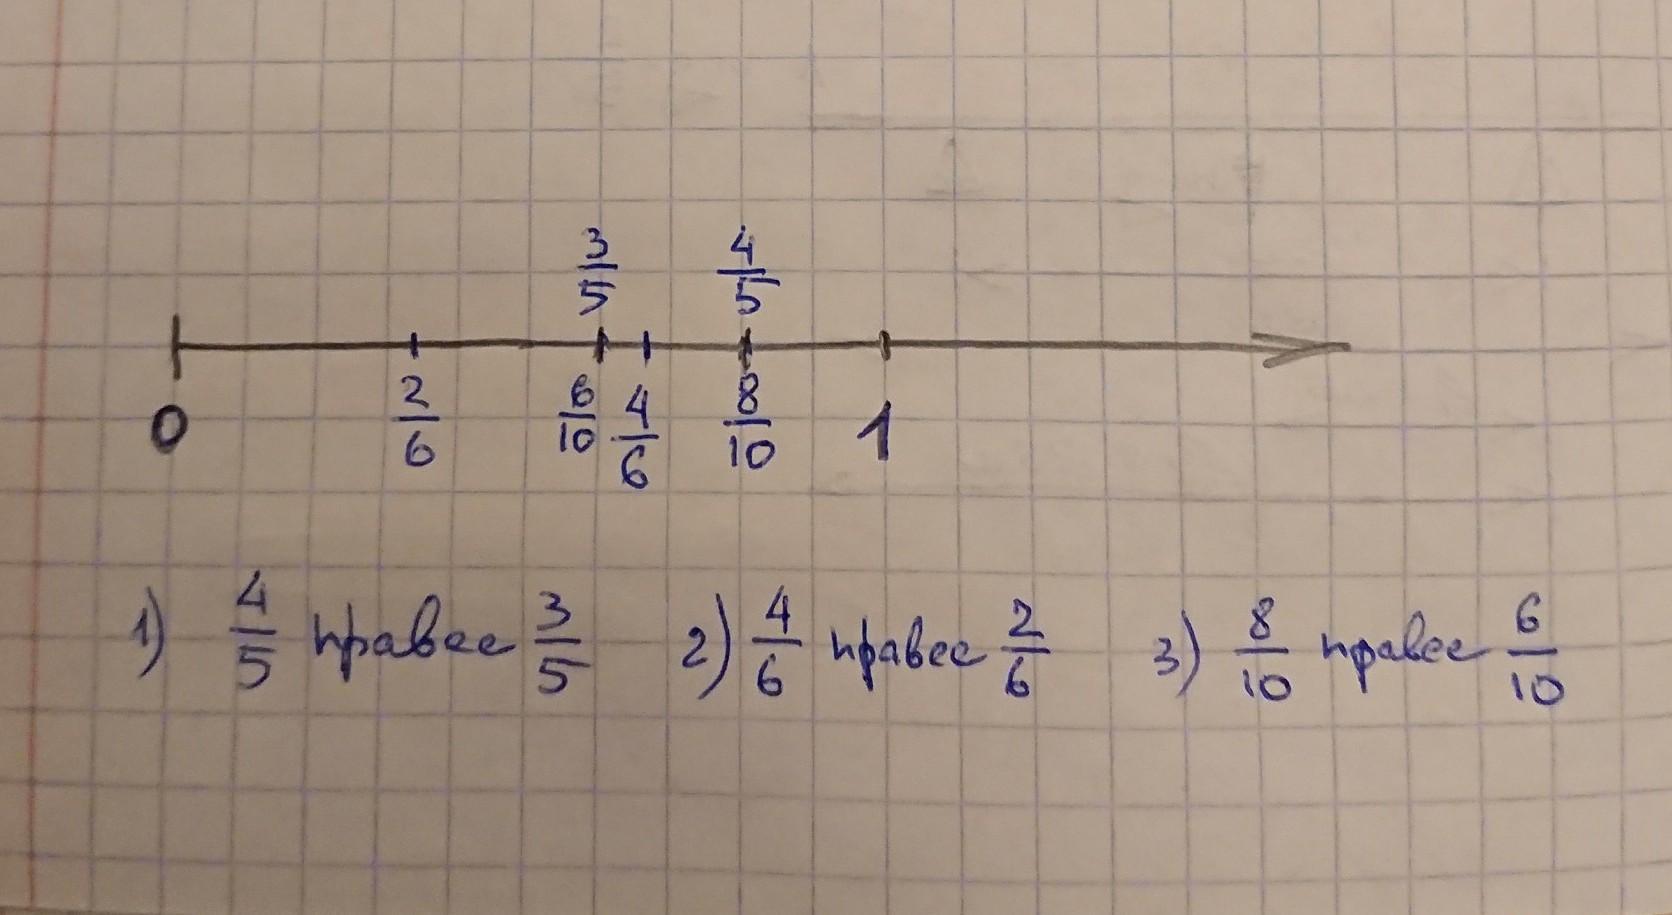 3/5 4/5
0 2/6 6/10 4/6 8/10 1
1) 4/5 правее 3/5 2) 4/6 правее 2/6 3) 8/10 правее 6/10